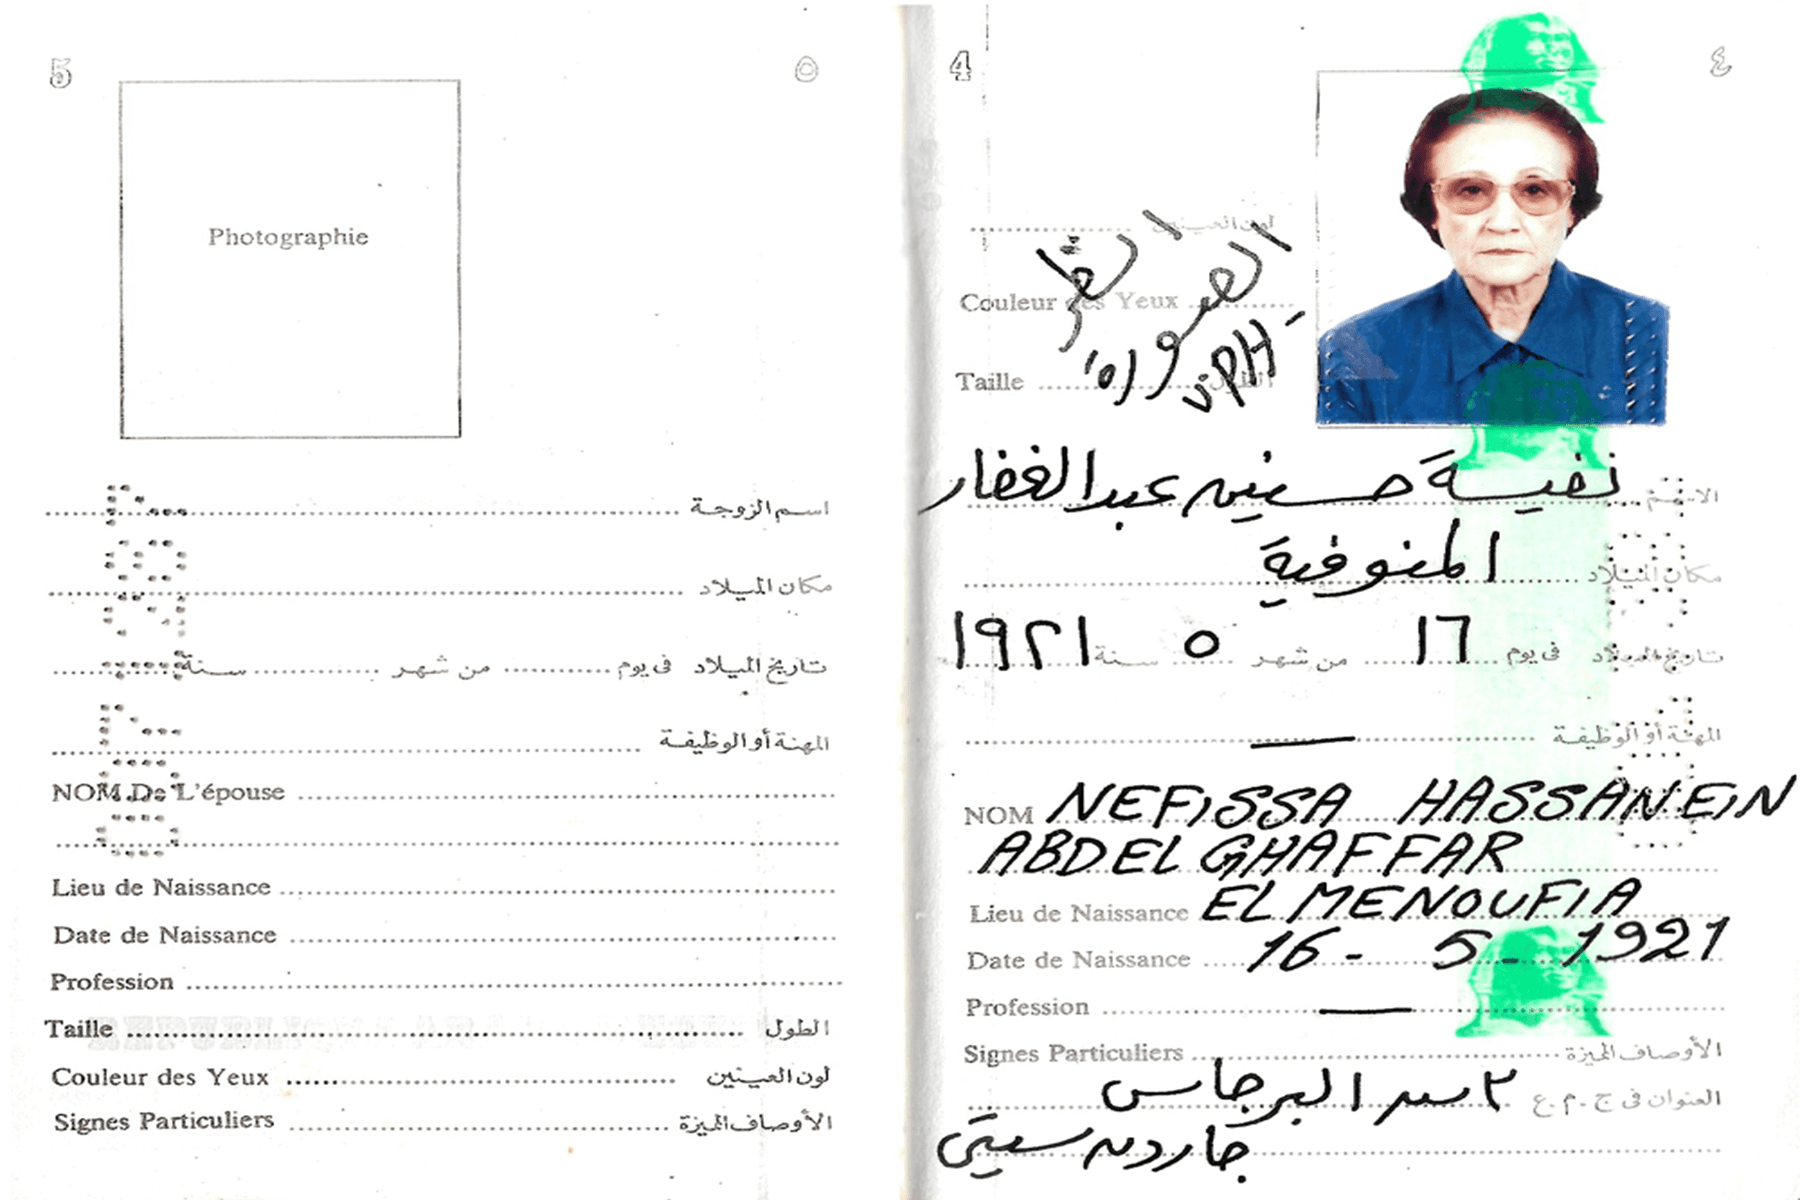 5 ٥
Photographie
اسم الزوجة
مكان الميلاد
تاريخ الميلاد فى يوم من شهر سنة
المهنة أو الوظيفة
NOM De L'épouse
Lieu de Naissance
Date de Naissance
Profession
Taille الطول
Couleur des Yeux لون العينين
Signes Particuliers الأوصاف المميزة
4 ٤
لون العينين
Couleur des Yeux
Taille الطول
الاسم نفيسة حسنين عبد الغفار
مكان الميلاد المنوفية
تاريخ الميلاد فى يوم ١٦ من شهر ٥ سنة ١٩٢١
المهنة أو الوظيفة —
NOM NEFISSA HASSANEIN
ABDEL GHAFFAR
Lieu de Naissance EL MENOUFIA
Date de Naissance 16 - 5 - 1921
Profession —
Signes Particuliers الأوصاف المميزة
العنوان فى ج . م . ع ٢ البرجاس
جاردن سيتى